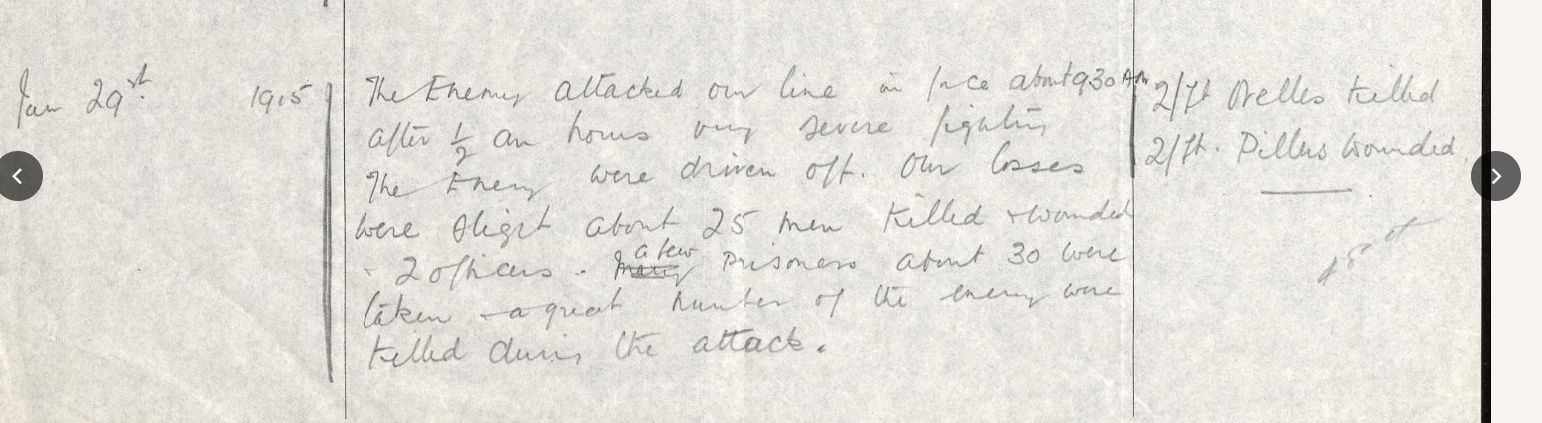 Jan 29st 1915
The Enemy attacked our line in force about 9.30 AM
after ½ an hours very severe fighting
The Enemy were driven off. Our losses
were slight about 25 men killed + wounded
- 2 officers. a few
many Prisoners about 30 were
taken + a great number of the enemy were
killed during the attack.
2/Lt killed
2/Lt. wounded.